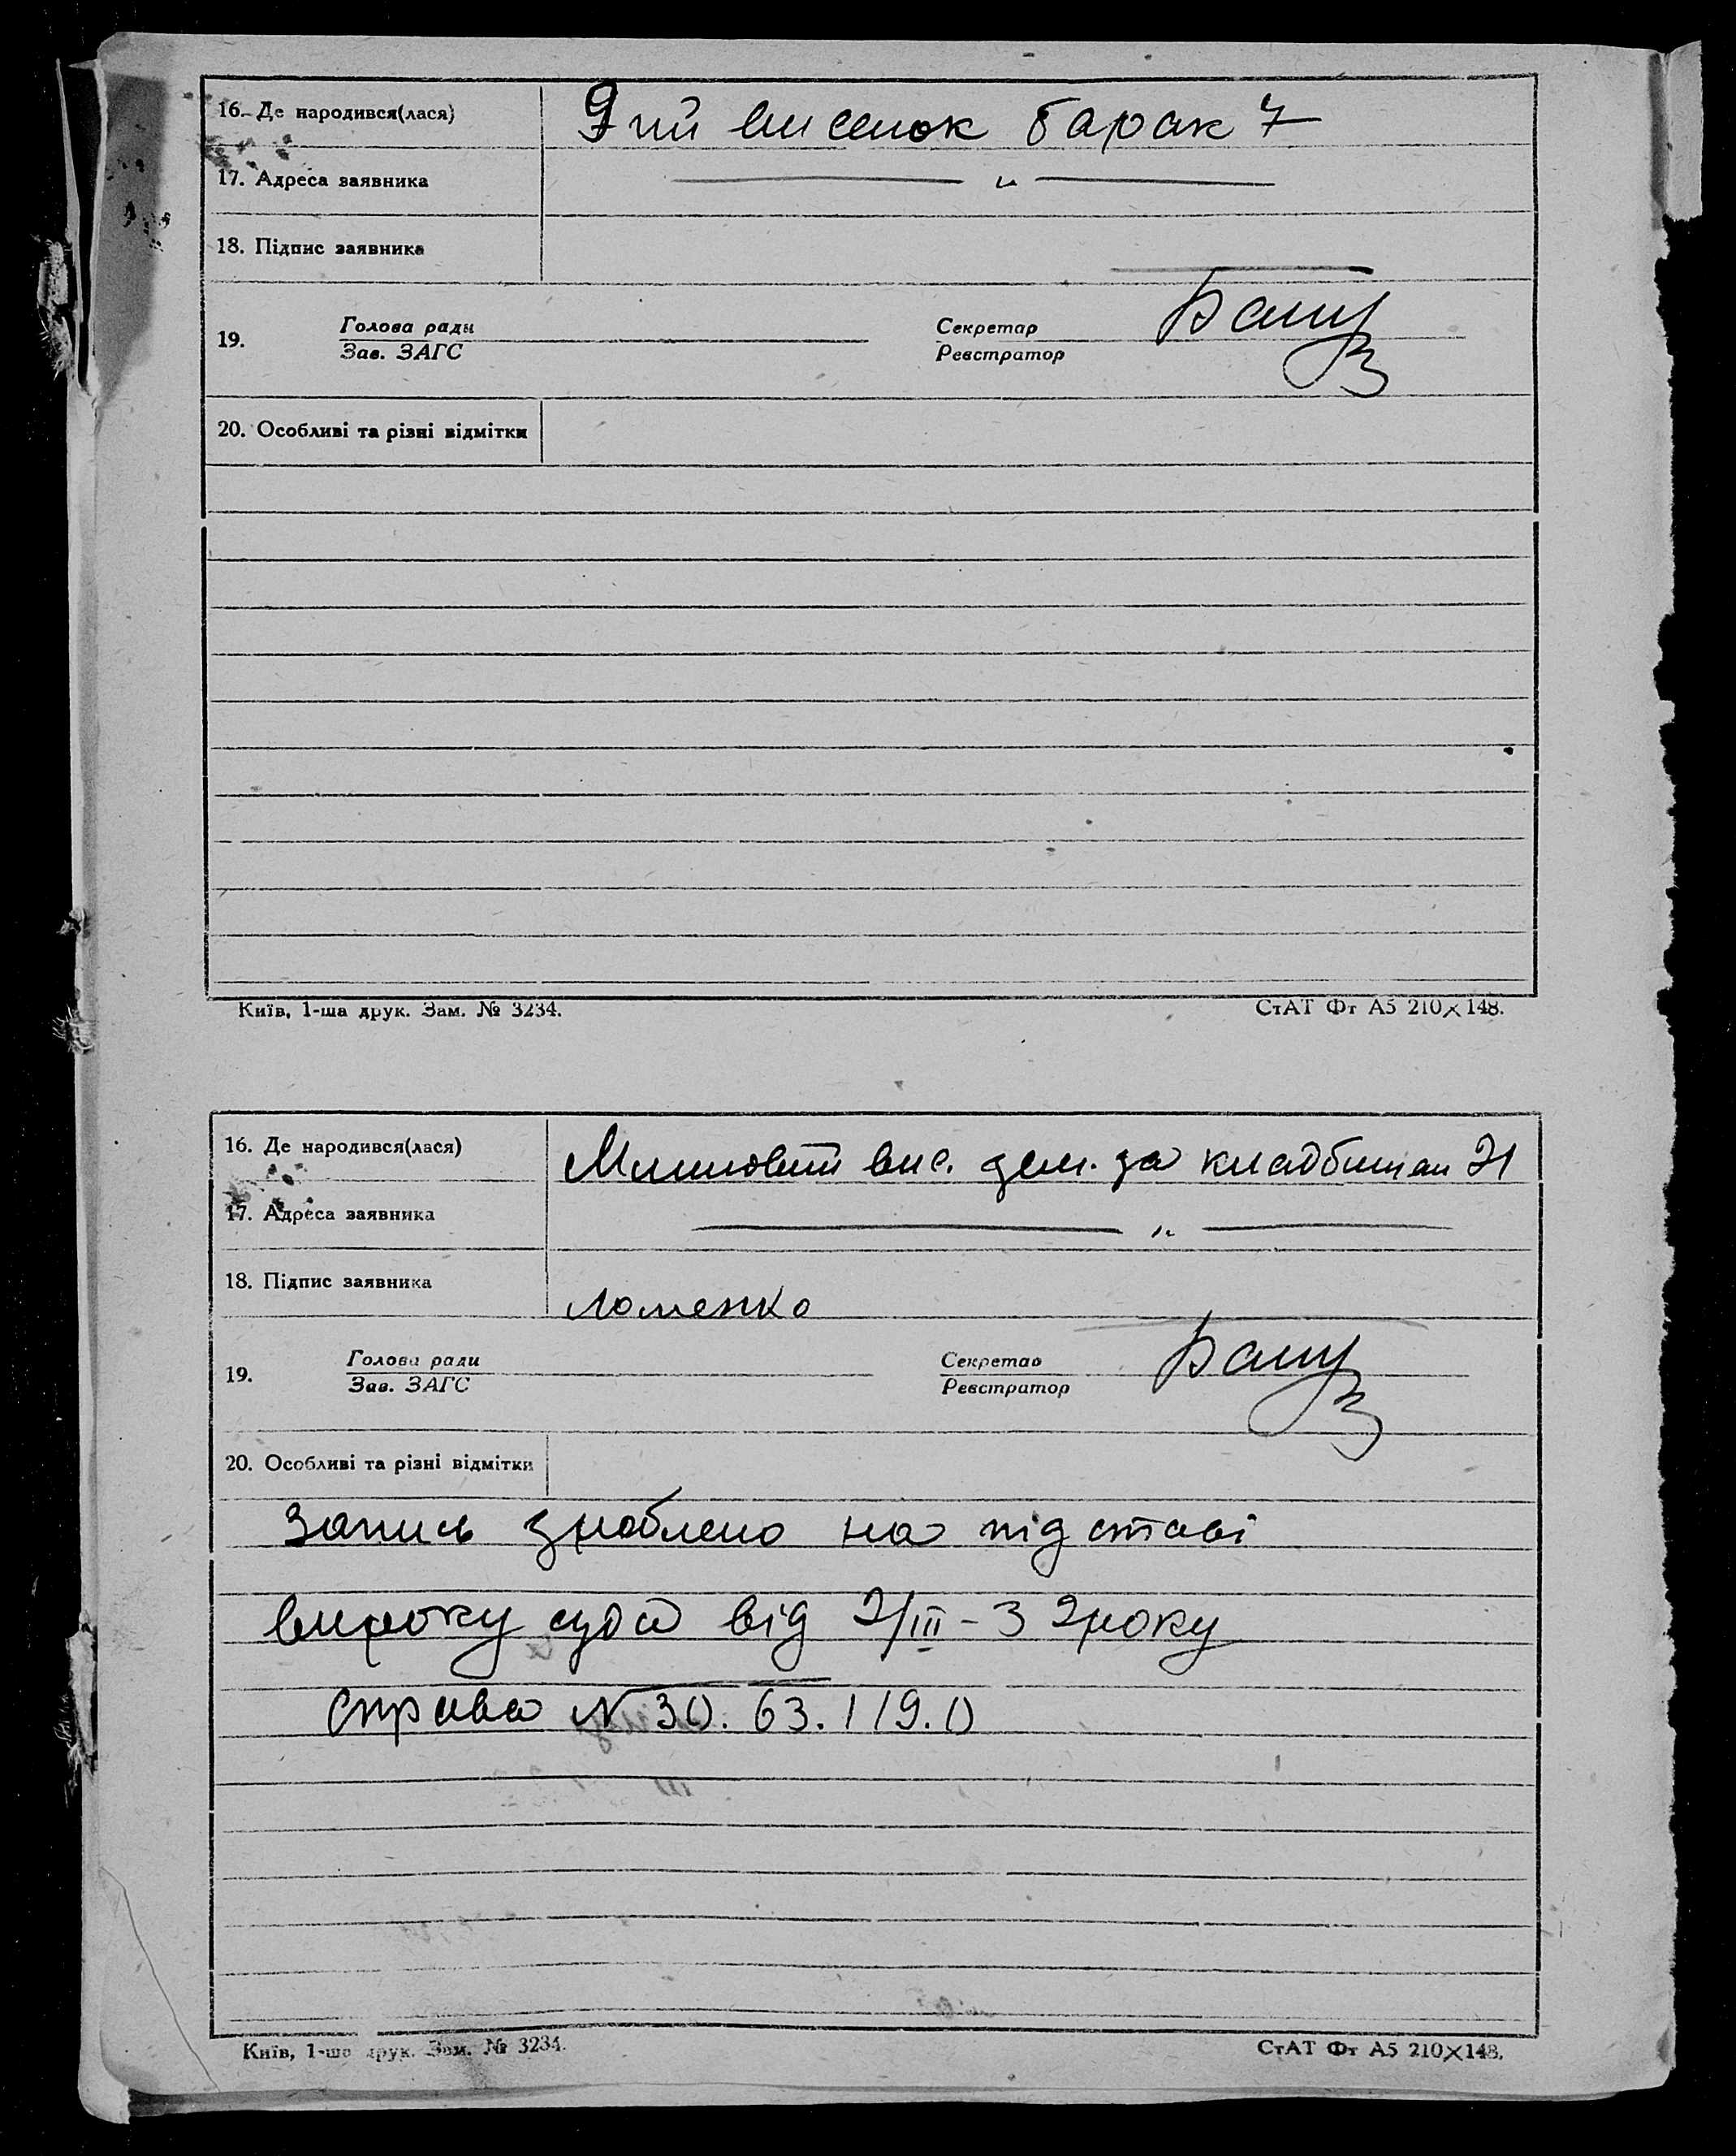 16. Де народився(лася) 9 тий виселок барак 7
17. Адреса заявника — " —
18. Підпис заявника
19. Голова ради Секретар
Зав. ЗАГС Реєстратор
20. Особливі та різні відмітки
Київ, 1-ша друк. Зам. № 3234. СтАТ Фт А5 210×148.
16. Де народився(лася) вис. зем. за кладбищем 21
17. Адреса заявника — " —
18. Підпис заявника Ломенко
19. Голова ради Секретар
Зав. ЗАГС Реєстратор
20. Особливі та різні відмітки
Запись зроблено на підставі
вироку суда від 2/III-32року
справа N 30. 63. 119. 0
Київ, 1-ша друк. Зам. № 3234. СтАТ Фт А5 210×148.